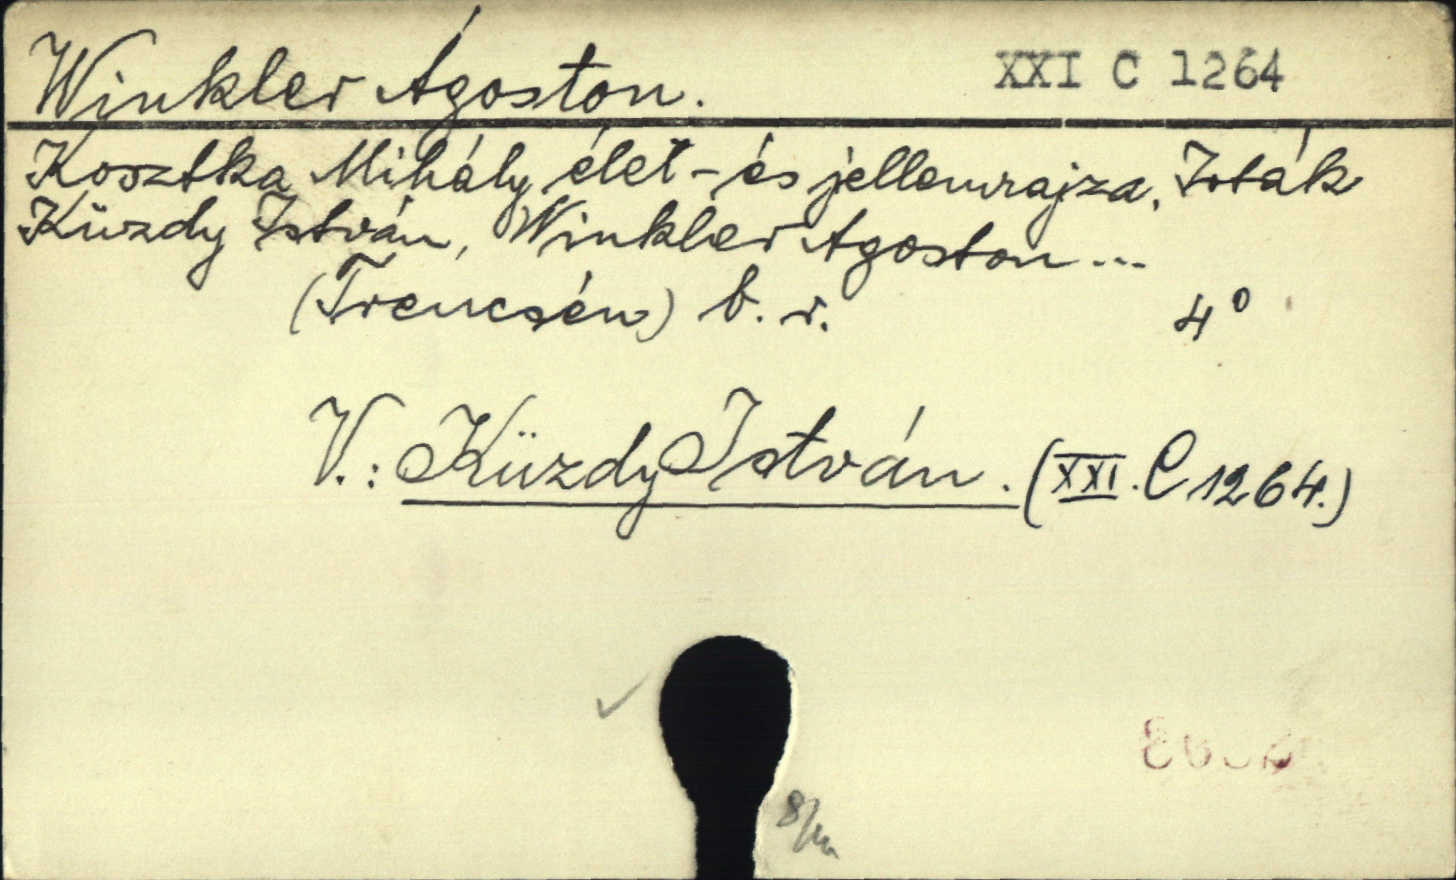 Winkler Ágoston. XXI C 1264
Kosztka Mihály élet- és jellemrajza. Irták
Küzdy István, Winkler Ágoston ...
(Trencsén) é. n. 4°
V.: Küzdy István. (XXI. C 1264.)